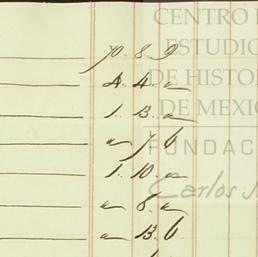 CENTRO
ESTUDIO
DE HISTOR
DE MEXI
FUNDAC
Carlos
70. 8. 9
4. 4. "
1. 13. "
" 7. 6
1. 10. "
" 8. "
" 13. 6